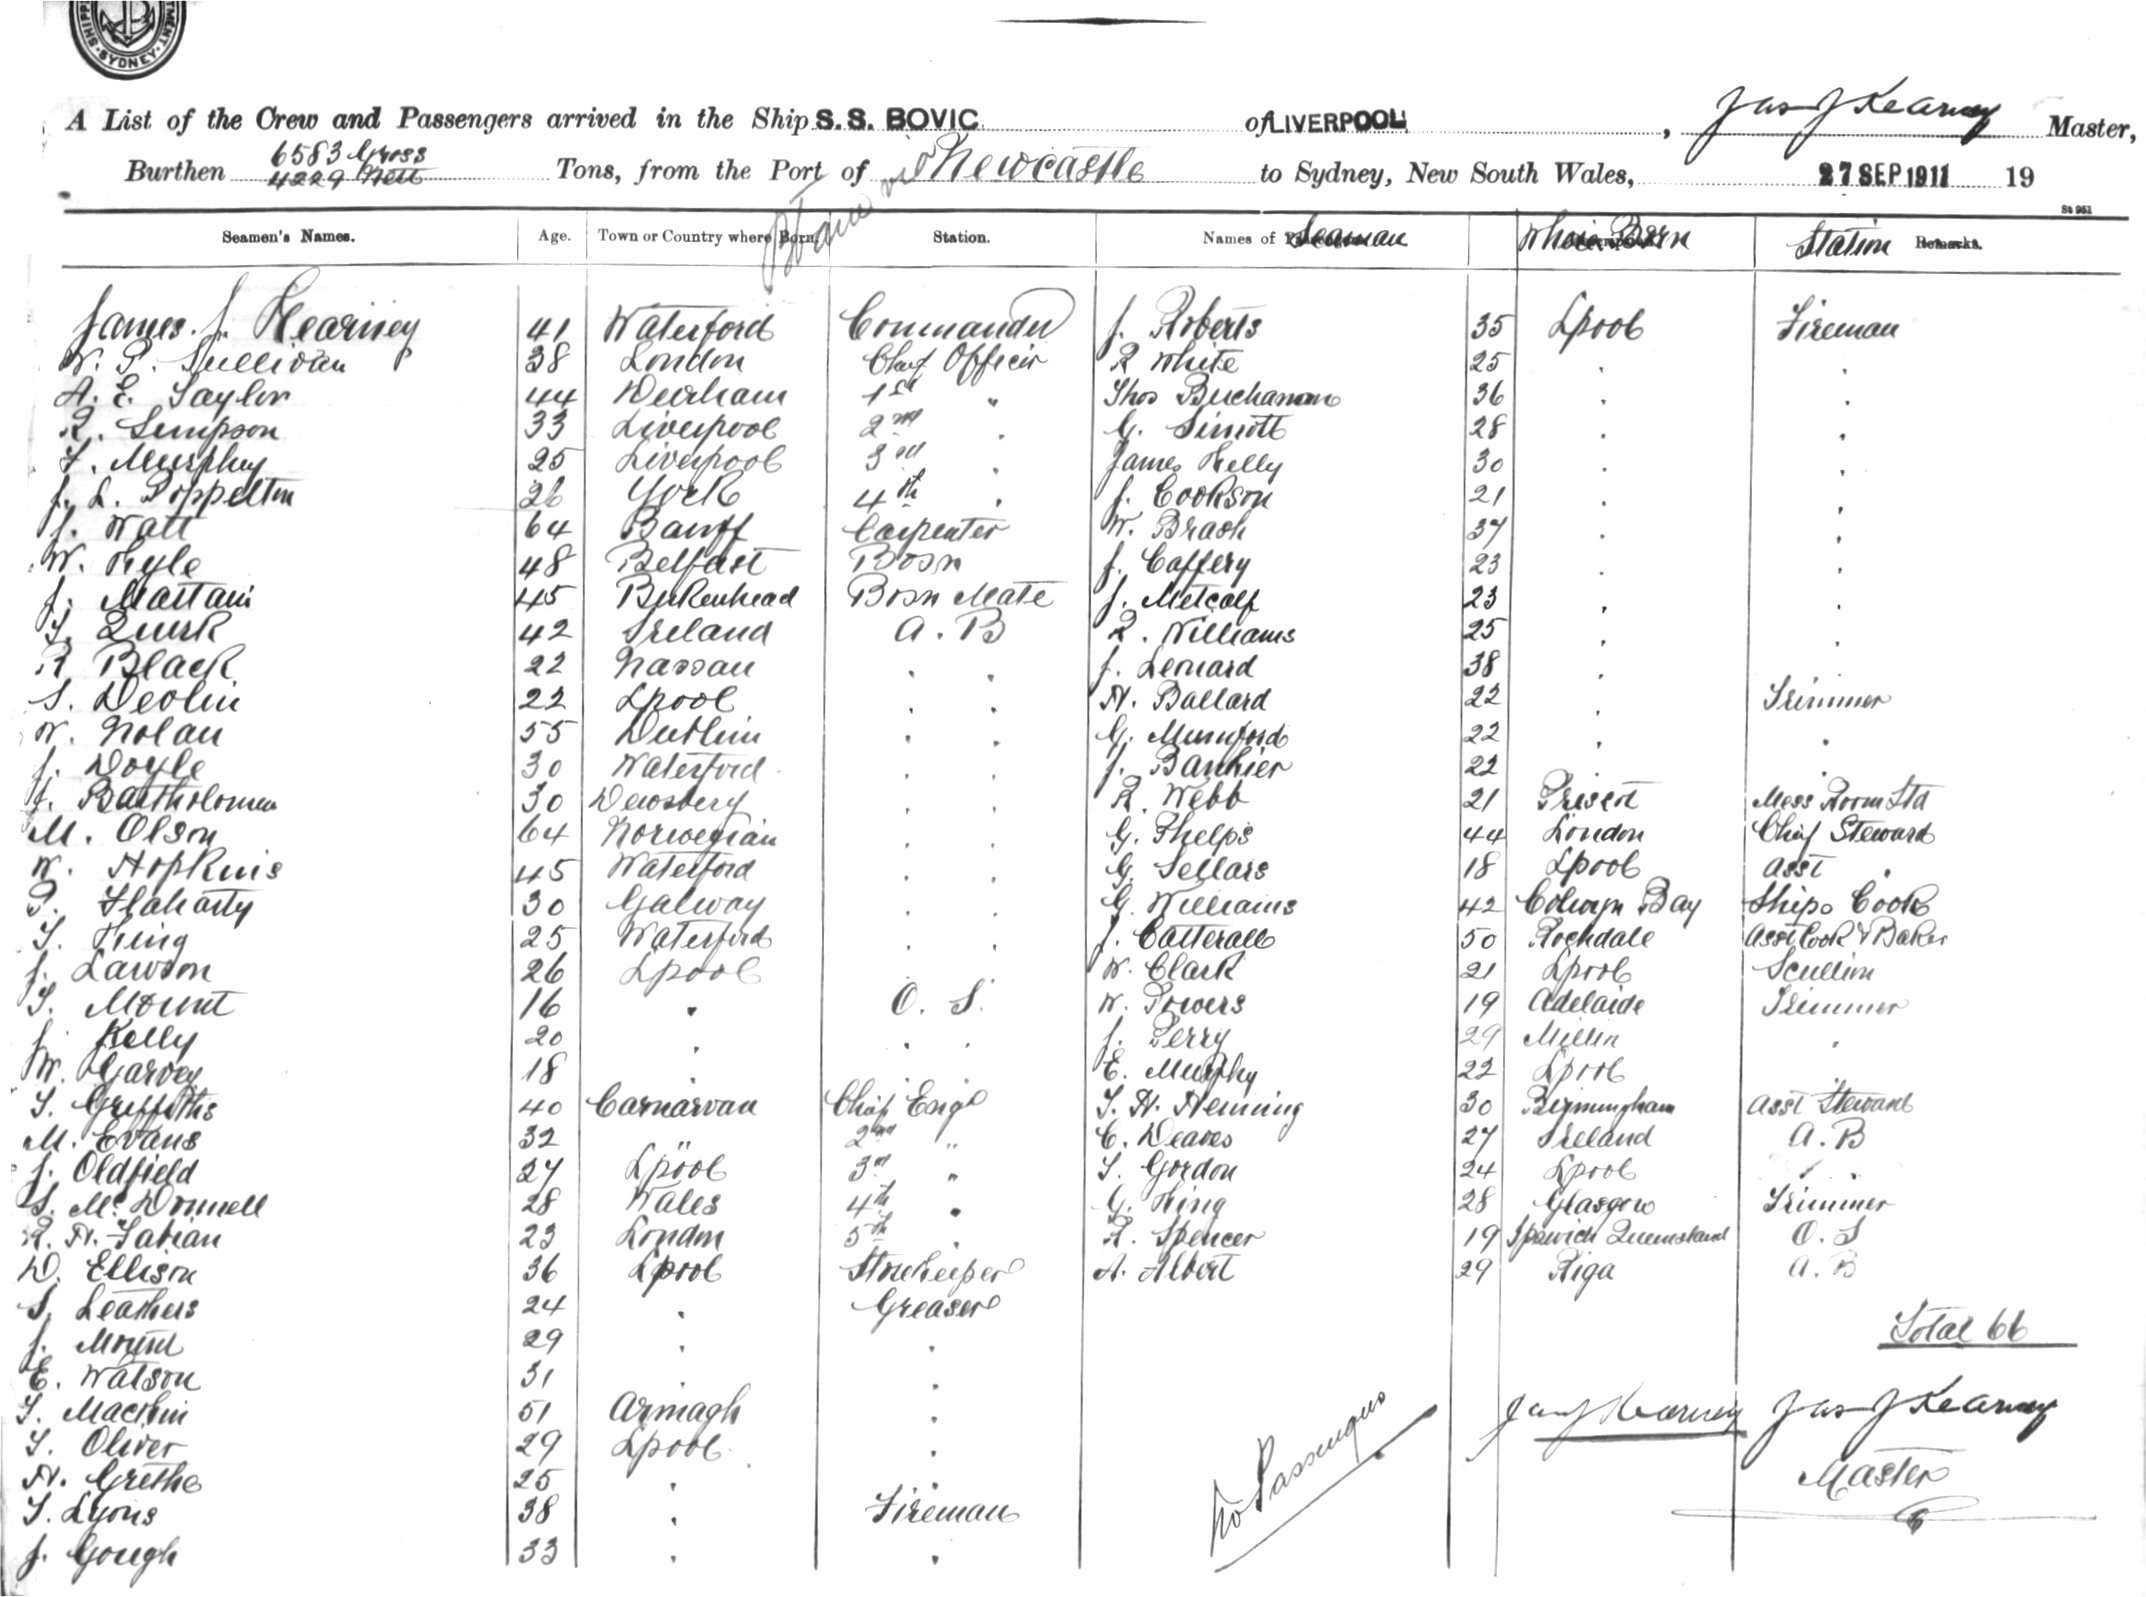 SHIPP
TMENT
SYDNEY
A List of the Crew and Passengers arrived in the Ship S.S. BOVIC of LIVERPOOL, Jas J Kearney Master,
Burthen 6583 Gross 4229 Nett Tons, from the Port of via Newcastle to Sydney, New South Wales, 27 SEP 1911 19
St 961
Seamen's Names. Age. Town or Country where Born. Station. Names of Seaman Where Born Station Remarks.
James. J. Kearney 41 Waterford Commander J. Roberts 35 Lpool Fireman
W. P. Sullivan 38 London Chief Officer R White 25 . .
A. E. Taylor 44 Durham 1st " Thos Buchanan 36 . .
R. Simpson 33 Liverpool 2nd . G. Sinnott 28 . .
F. Murphy 25 Liverpool 3rd . James Kelly 30 . .
J. L. Poppelton 26 York 4th . J. Cookson 21 . .
J. Watt 64 Banff Carpenter W. Brash 37 . .
W. Kyle 48 Belfast Bosn J. Caffery 23 . .
J. 45 Birkenhead Bosn Mate J. Metcalf 23 . .
T. Quirk 42 Ireland A. B R. Williams 25 . .
R Black 22 Nassau . . J. Lenard 38 . .
S. Devlin 22 Lpool . . H. Ballard 22 . Trimmer
W. Nolan 55 Dublin . . G. Mumford 22 . .
J. Doyle 30 Waterford . . J. Bankier 22 . .
J. Bartholomew 30 Dewsbery . . R. Webb 21 Prescot Mess Room Std
M. Olson 64 Norwegian . . G. Phelps 44 London Chief Steward
W. Hopkins 45 Waterford . . G. Sellars 18 Lpool Asst .
P. Flaharty 30 Galway . . G. Williams 42 Colwyn Bay Ships Cook
T. King 25 Waterford . . J. Catterall 50 Rochdale Asst Cook & Baker
J. Lawson 26 Lpool W. Clark 21 Lpool Scullion
T. Mount 16 . O. S. W. Powers 19 Adelaide Trimmer
J. Kelly 20 . . . J. Perry 29 .
W. Garvey 18 . . . E. Murphy 22 Lpool .
T. Griffiths 40 Carnarvan Chief Engr T. H. Henning 30 Birmingham Asst Steward
M. Evans 32 " 2nd " C. Deaves 27 Ireland A. B
J. Oldfield 27 Lpool 3rd " T. Gordon 24 Lpool . .
S. McDonnell 28 Wales 4th . G. King 28 Glasgow Trimmer
R. H. Fabian 23 London 5th . R. Spencer 19 Ipswich Queensland O. S
D. Ellison 36 Lpool Storekeeper A. Albert 29 Riga A. B
S. Leathers 24 . Greaser
Total 66
J. Mount 29 . .
E. Watson 31 . .
T. Machin 51 Armagh .
Jas J Kearney Jas J Kearney
T. Oliver 29 Lpool .
Master
H. 25 . .
No Passengers
T. Lyons 38 . Fireman
J. Gough 33 . .